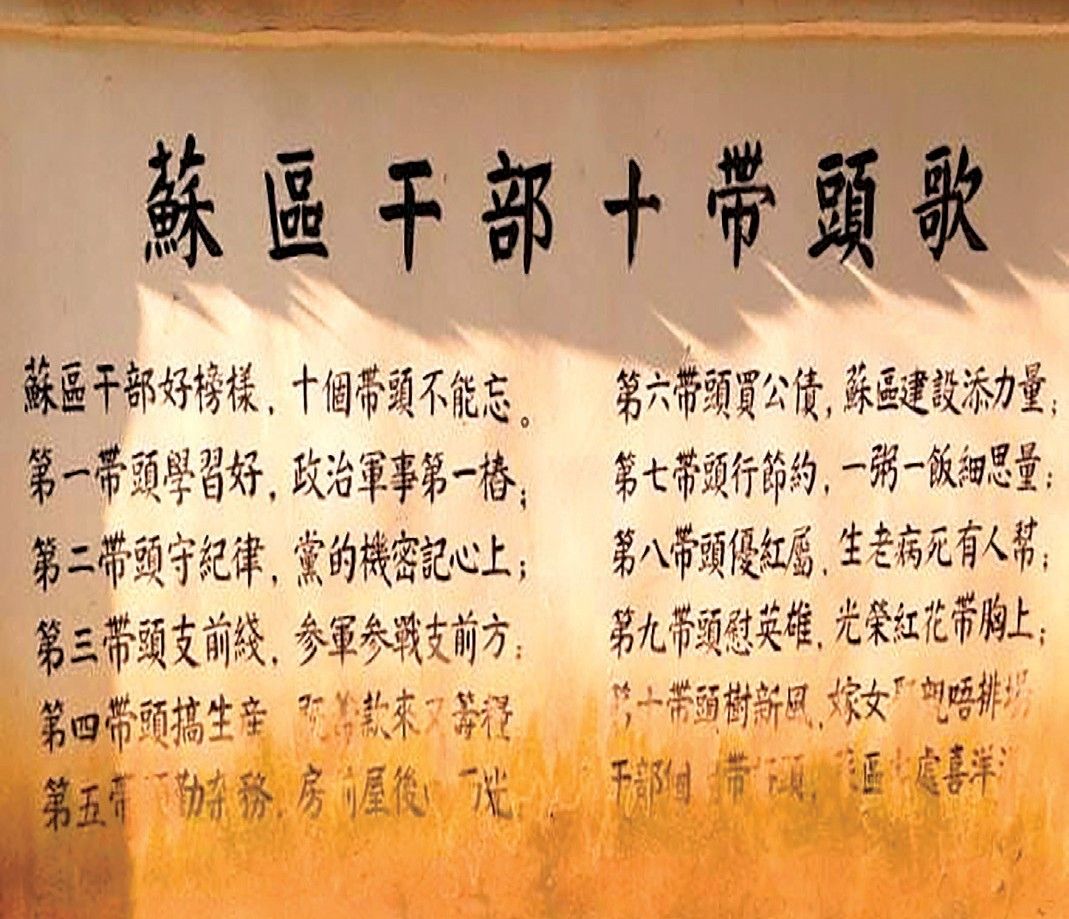 蘇區干部十帶頭歌
蘇區干部好榜樣，十個带頭不能忘。
第一带頭學習好，政治軍事第一樁；
第二带頭守紀律，黨的機密記心上；
第三带頭支前綫，參軍參戰支前方；
第四带頭搞生産 款來又籌糧
第五带 務，房 屋後
第六带頭買公債，蘇區建設添力量；
第七带頭行節約，一粥一飯細思量；
第八带頭優紅屬，生老病死有人幫；
第九带頭慰英雄，光榮紅花带胸上；
第十带頭樹新風，嫁女 唔排場
干部個 带 頭，區 處喜洋